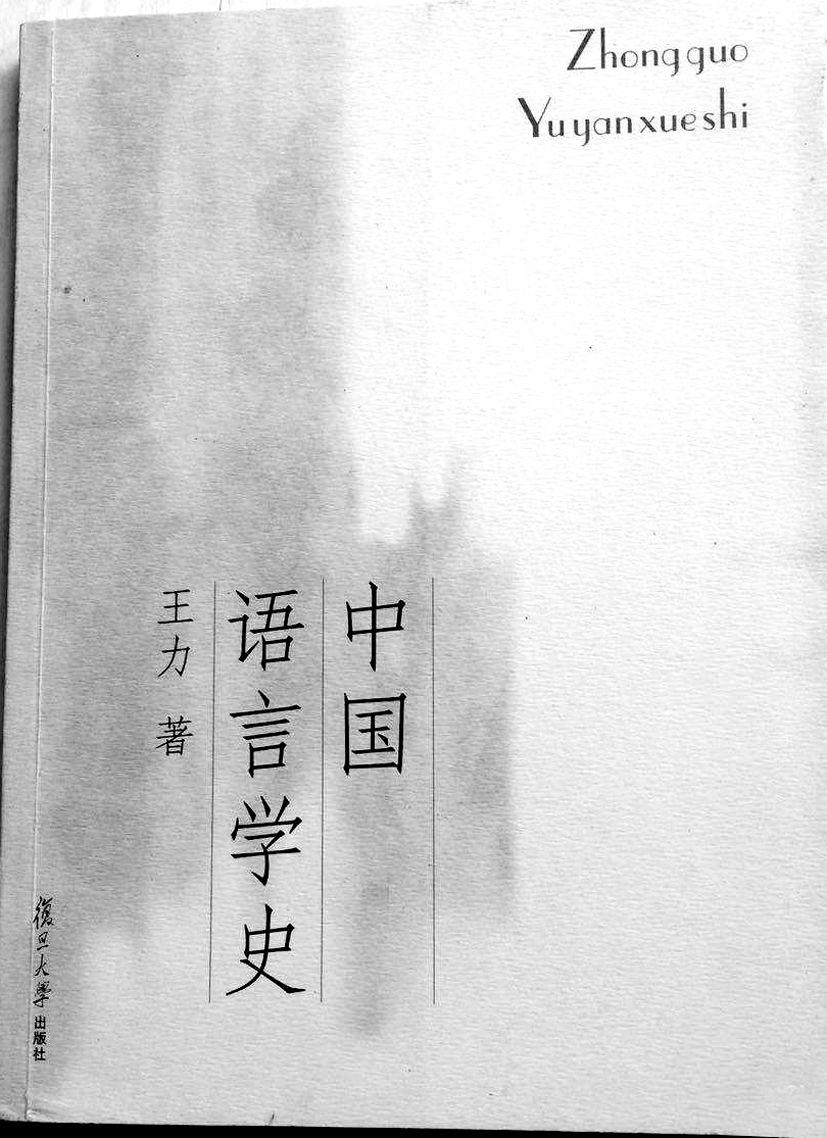 Zhongguo
Yuyanxueshi
中国
语言学史
王力 著
復旦大學出版社